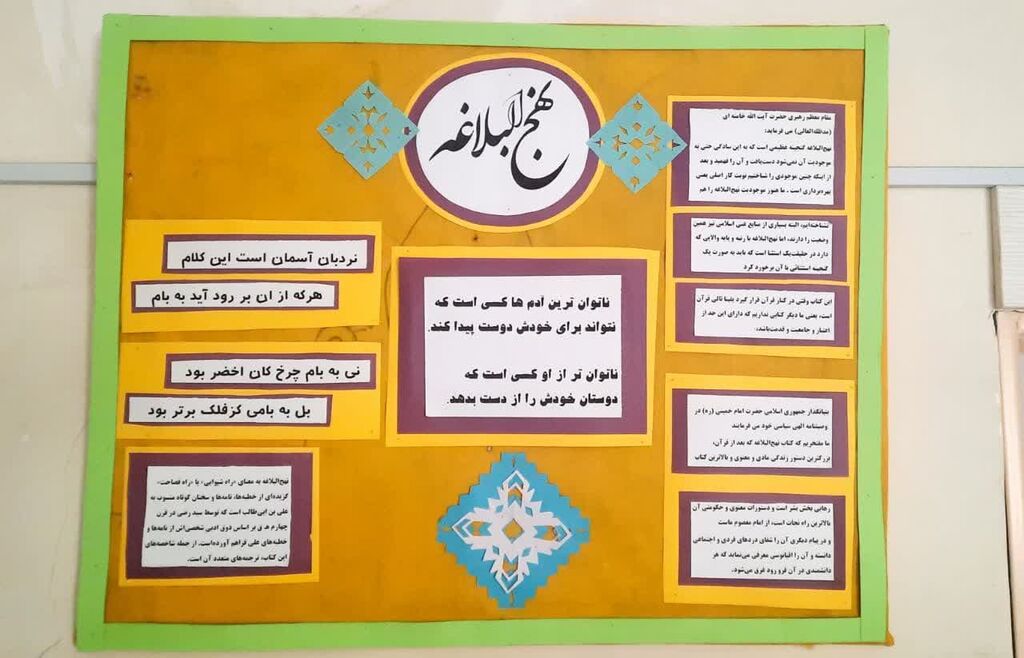 نهج البلاغه
مقام معظم رهبری حضرت آیت الله خامنه ای
(مدظله‌العالی) می فرماید:
نهج‌البلاغه گنجینه عظیمی است که به این سادگی حتی به
موجودیت آن نمی‌شود دست‌یافت و آن را فهمید و بعد
از اینکه چنین موجودی را شناختیم نوبت کار اصلی یعنی
بهره‌برداری است . ما هنوز موجودیت نهج‌البلاغه را هم
نشناخته‌ایم، البته بسیاری از منابع غنی اسلامی نیز همین
وضعیت را دارند، اما نهج‌البلاغه با رتبه و پایه والایی که
دارد در حقیقت‌یک استثنا است که باید به صورت یک
گنجینه استثنائی با آن برخورد کرد
این کتاب وقتی در کنار قرآن قرار گیرد یقینا تالی قرآن
است، یعنی ما دیگر کتابی نداریم که دارای این حد از
اعتبار و جامعیت و قدمت‌باشد.
بنیانگذار جمهوری اسلامی حضرت امام خمینی (ره) در
وصیتنامه الهی سیاسی خود می فرمایند
ما مفتخریم که کتاب نهج‌البلاغه که بعد از قرآن،
بزرگترین دستور زندگی مادی و معنوی و بالاترین کتاب
رهائی بخش بشر است و دستورات معنوی و حکومتی آن
بالاترین راه نجات است، از امام معصوم ماست
و در پیام دیگری آن را شفای دردهای فردی و اجتماعی
دانسته و آن را اقیانوسی معرفی می‌نماید که هر
دانشمندی در آن فرو رود غرق می‌شود.
ناتوان ترین آدم ها کسی است که
نتواند برای خودش دوست پیدا کند.
ناتوان تر از او کسی است که
دوستان خودش را از دست بدهد.
نردبان آسمان است این کلام
هرکه از ان بر رود آید به بام
نی به بام چرخ کان اخضر بود
بل به بامی کزفلک برتر بود
نهج‌البلاغه به معنای «راه شیوایی» یا «راه فصاحت»
گزیده‌ای از خطبه‌ها، نامه‌ها و سخنان کوتاه منسوب به
علی بن ابی‌طالب است که توسط سید رضی در قرن
چهارم ه ق بر اساس ذوق ادبی شخصی‌اش از نامه‌ها و
خطبه‌های علی فراهم آورده‌است. از جمله شاخصه‌های
این کتاب، ترجمه‌های متعدد آن است.